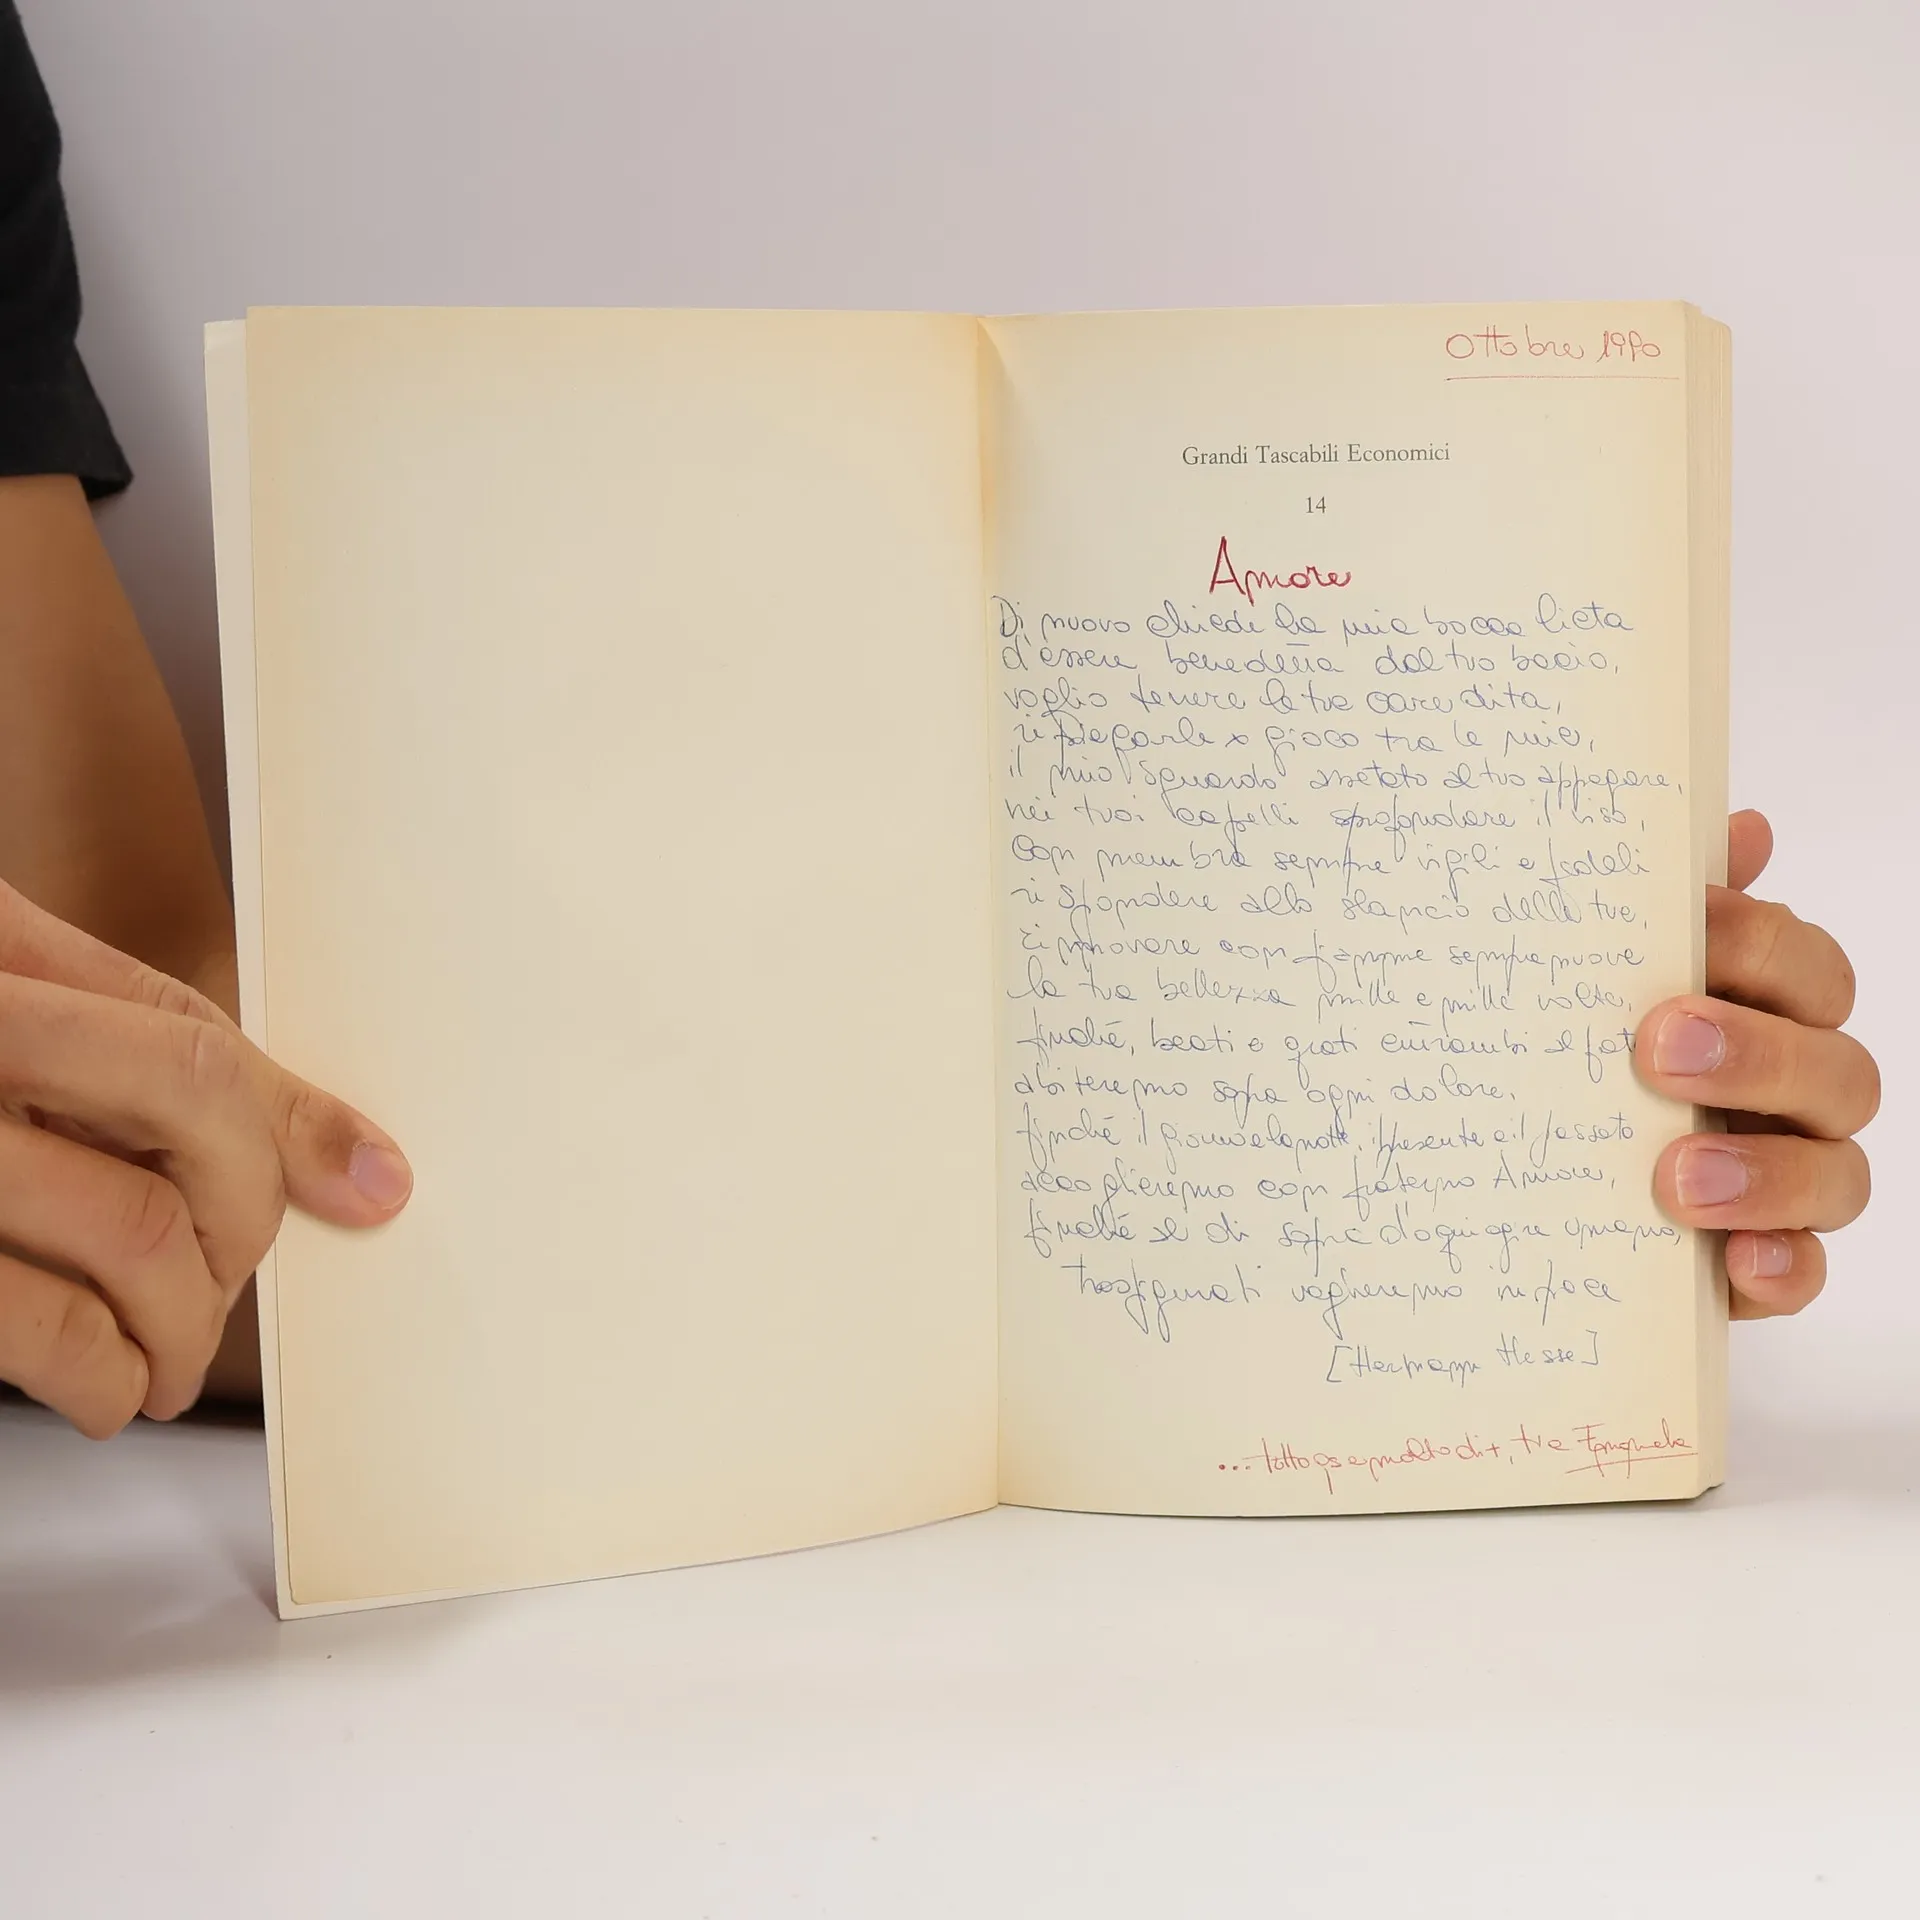 Ottobre 1990
Grandi Tascabili Economici
14
Amore
Di nuovo chiede la mia bocca lieta
d'essere benedetta dal tuo bacio,
voglio tenere le tue care dita,
ripiegarle x gioco tra le mie,
il mio sguardo assetato al tuo appagare,
nei tuoi capelli sprofondare il viso,
con membra sempre vigili e fedeli
rispondere allo slancio delle tue,
rinnovare con fiamme sempre nuove
la tua bellezza mille e mille volte,
finché, beati e grati entrambi al fat
abiteremo sopra ogni dolore,
finché il giorno e la notte, il presente e il passato
accoglieremo con fraterno Amore,
finché al di sopra d'ogni agire umano,
trasfigurati vagheremo in pace
[Hermann Hesse]
... tutto qs e molto di +, tua Emanuela